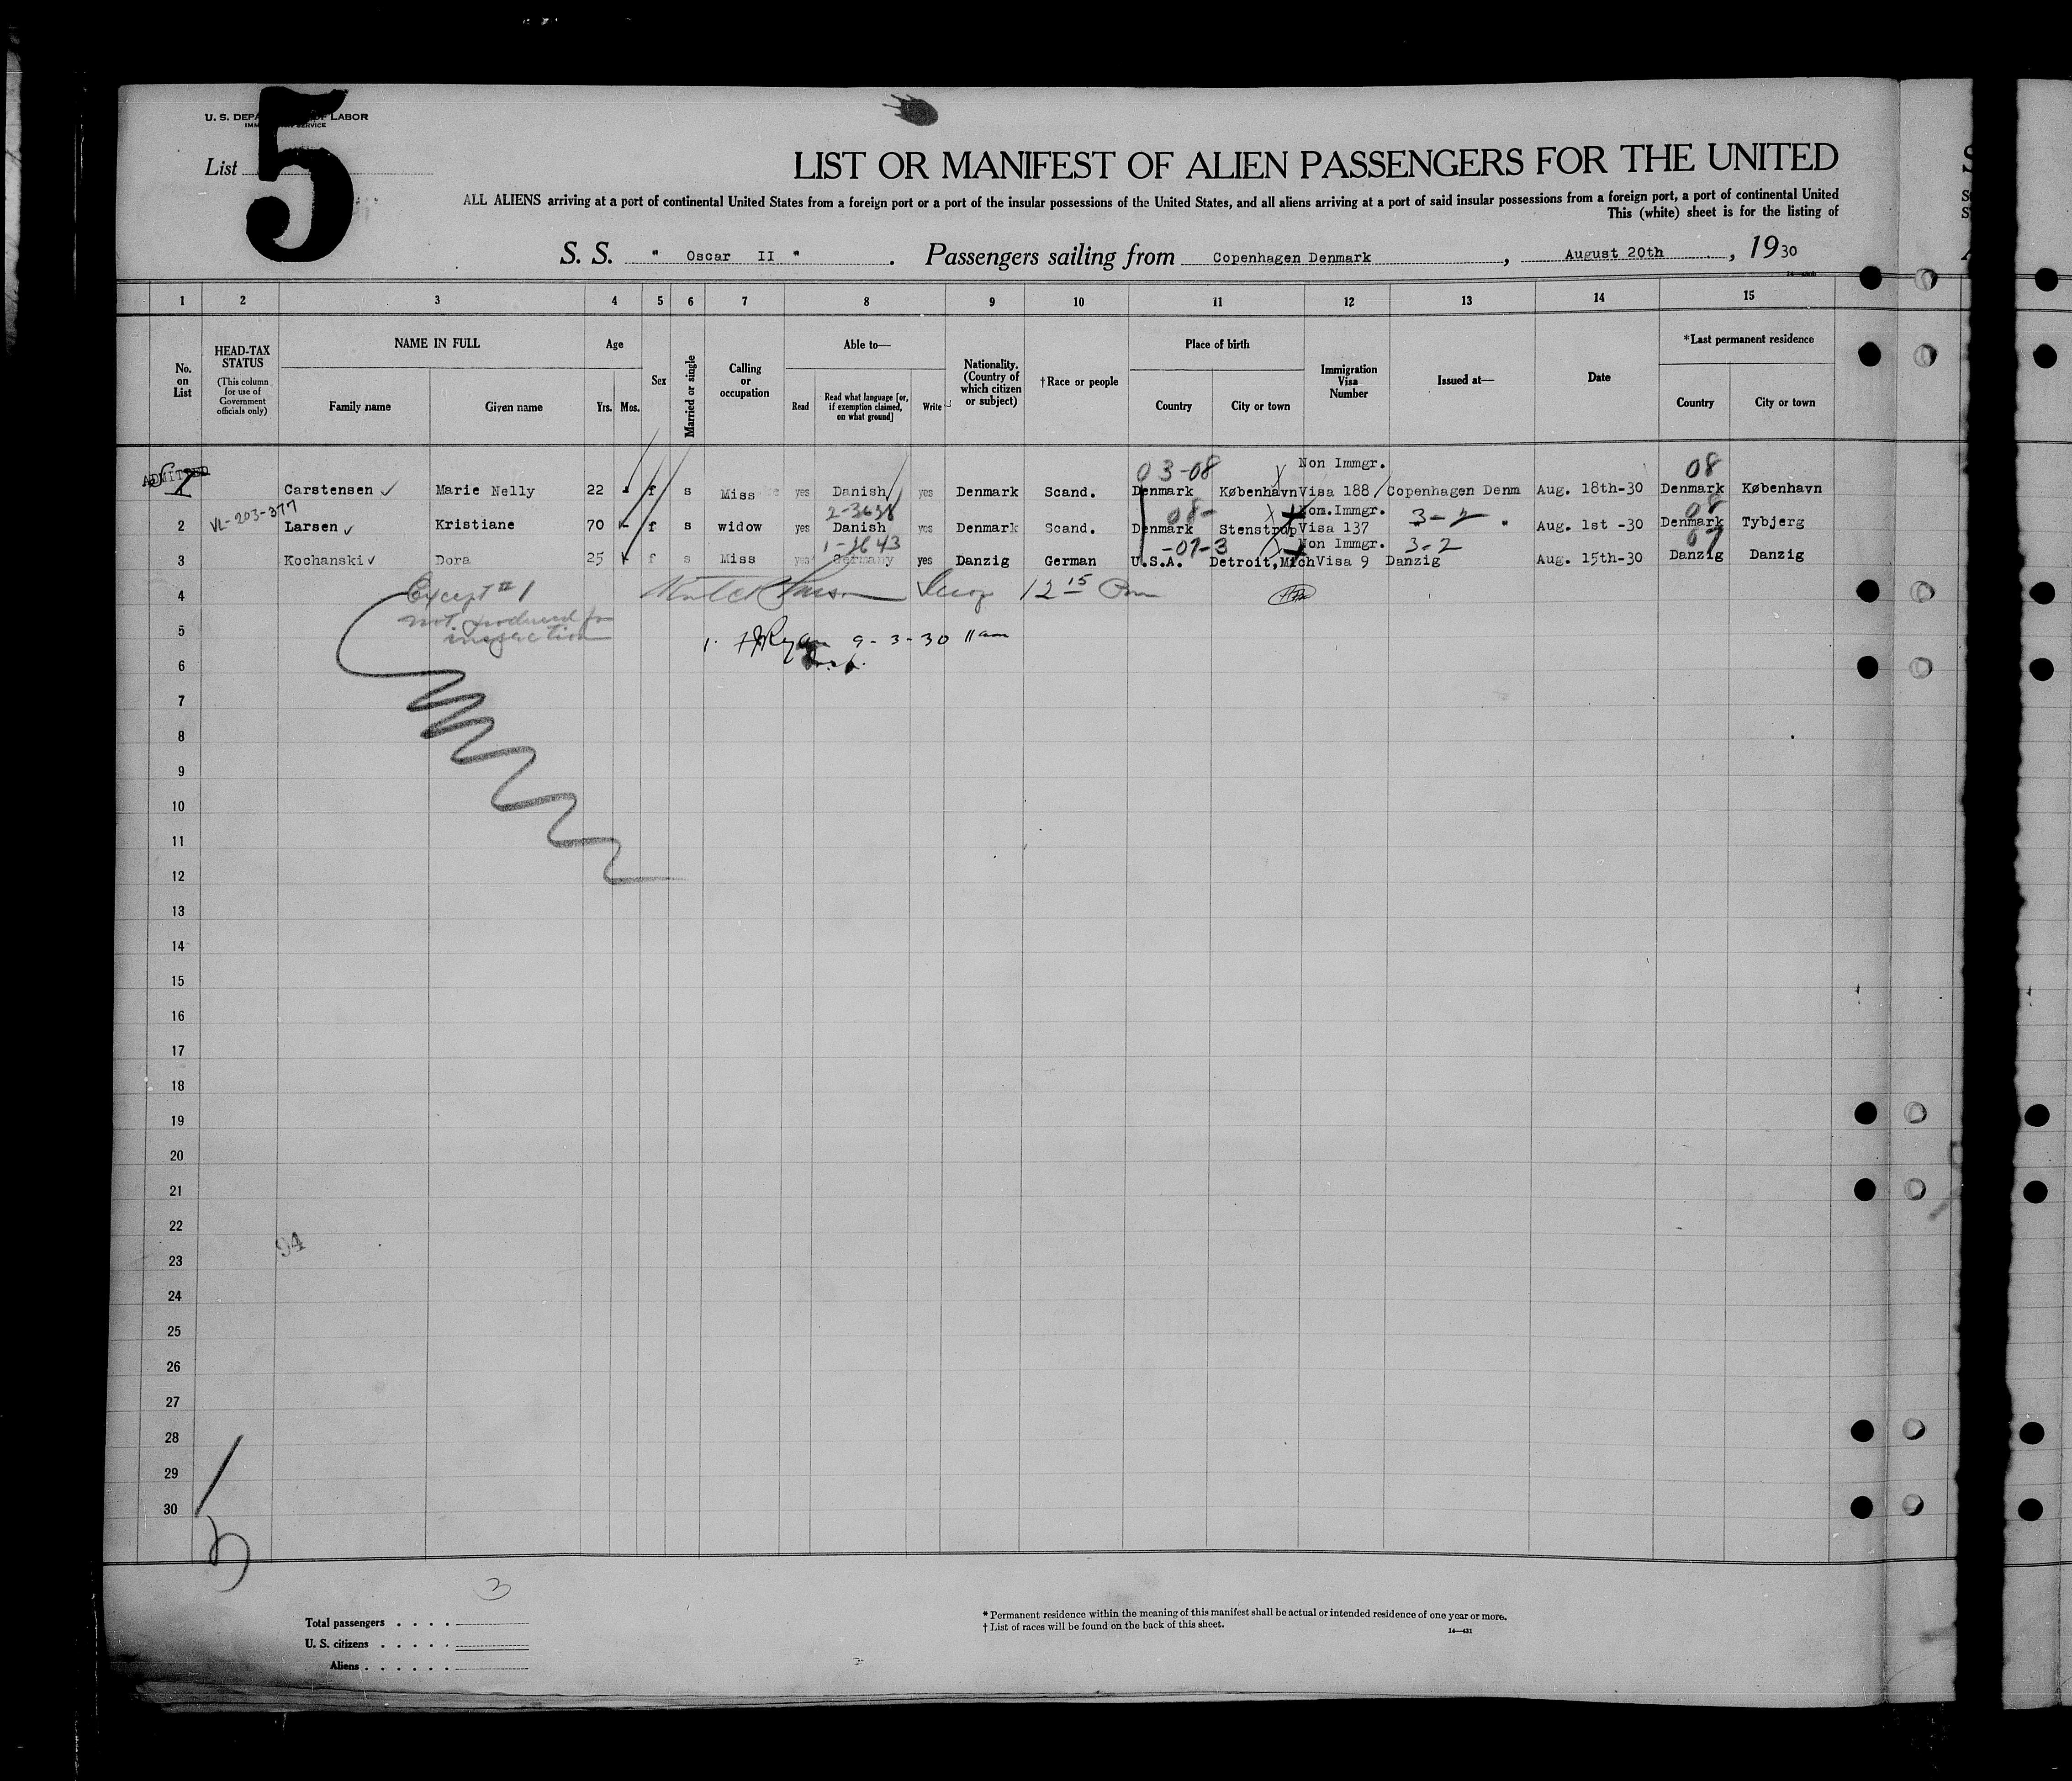 5
U. S. DEPA OF LABOR
IMM SERVICE
List
LIST OR MANIFEST OF ALIEN PASSENGERS FOR THE UNITED
ALL ALIENS arriving at a port of continental United States from a foreign port or a port of the insular possessions of the United States, and all aliens arriving at a port of said insular possessions from a foreign port, a port of continental United
This (white) sheet is for the listing of
S. S. " Oscar II " . Passengers sailing from Copenhagen Denmark , August 20th , 1930
1 2 3 4 5 6 7 8 9 10 11 12 13 14 15
No. on List HEAD-TAX STATUS (This column for use of Government officials only) NAME IN FULL Age Sex Married or single Calling or occupation Able to— Nationality. (Country of which citizen or subject) †Race or people Place of birth Immigration Visa Number Issued at— Date *Last permanent residence
Family name Given name Yrs. Mos. Read Read what language [or, if exemption claimed, on what ground] Write Country City or town Country City or town
ADMITTED 03-08 Non Immgr. 08
1 Carstensen ✓ Marie Nelly 22 f s Miss yes Danish yes Denmark Scand. Denmark København Visa 188 Copenhagen Denm Aug. 18th-30 Denmark København
VL-203-377 2-3638 08- Non.Immgr. 3-2 08
2 Larsen ✓ Kristiane 70 f s widow yes Danish yes Denmark Scand. Denmark Stenstrup Visa 137 " Aug. 1st -30 Denmark Tybjerg
1-3643 -07-3 Non Immgr. 3-2 07
3 Kochanski ✓ Dora 25 f s Miss yes Germany yes Danzig German U.S.A. Detroit,Mich Visa 9 Danzig Aug. 15th-30 Danzig Danzig
4 Except #1 12 15 Pm
not produced for
5 inspection
1. Ryan 9-3-30 11am
6 Insp.
7
8
9
10
11
12
13
14
15
16
17
18
19
20
21
22
94
23
24
25
26
27
28
29
30
3
Total passengers . . . .
U. S. citizens . . . . .
Aliens . . . . . .
* Permanent residence within the meaning of this manifest shall be actual or intended residence of one year or more.
† List of races will be found on the back of this sheet.
14—431